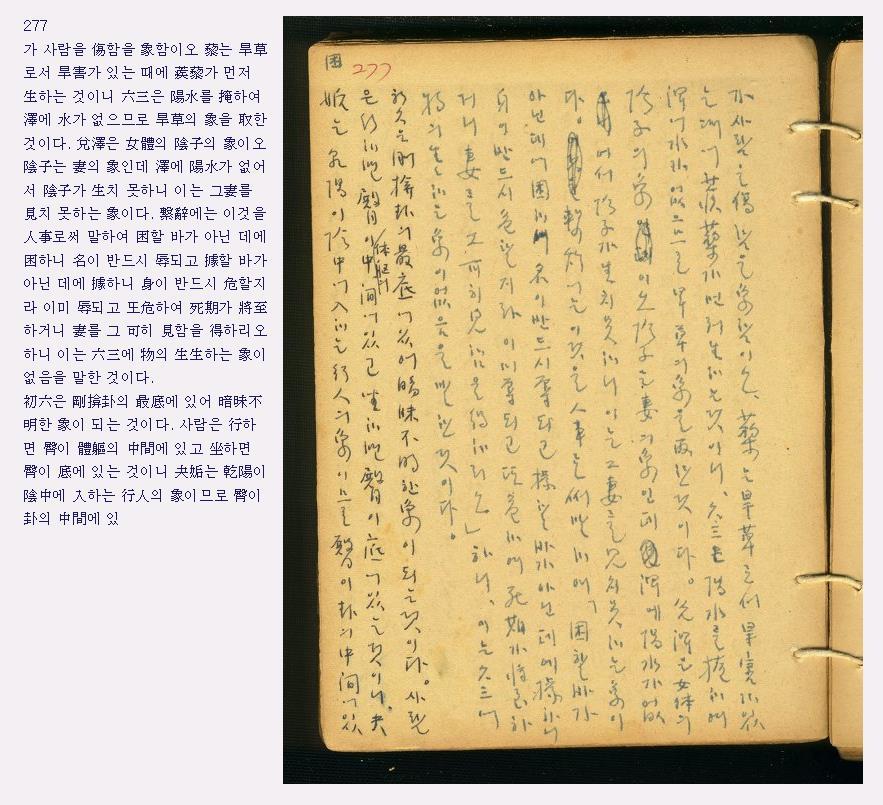 277
가 사람을 傷함을 象함이오 藜는 旱草
로서 旱害가 있는 때에 蒺藜가 먼저
生하는 것이니 六三은 陽水를 掩하여
澤에 水가 없으므로 旱草의 象을 取한
것이다. 兌澤은 女體의 陰子의 象이오
陰子는 妻의 象인데 澤에 陽水가 없어
서 陰子가 生치 못하니 이는 그妻를
見치 못하는 象이다. 繫辭에는 이것을
人事로써 말하여 困할 바가 아닌 데에
困하니 名이 반드시 辱되고 據할 바가
아닌 데에 據하니 身이 반드시 危할지
라 이미 辱되고 또危하여 死期가 將至
하거니 妻를 그 可히 見함을 得하리오
하니 이는 六三에 物의 生生하는 象이
없음을 말한 것이다.
初六은 剛揜卦의 最底에 있어 暗昧不
明한 象이 되는 것이다. 사람은 行하
면 臀이 體軀의 中間에 있고 坐하면
臀이 底에 있는 것이니 夬姤는 乾陽이
陰中에 入하는 行人의 象이므로 臀이
卦의 中間에 있
困
277
가 사람을 傷함을 象함이오、藜는 旱草로서 旱害가 있
는 때에 蒺藜가 먼저 生하는 것이니、六三은 陽水를 掩하여
澤에 水가 없으므로 旱草의 象을 取한 것이다。兌澤은 女体의
陰子의 象이오 陰子는 妻의 象인데 澤에 陽水가 없
어서 陰子가 生치 못하니 이는 그 妻를 見치 못하는 象이
다。繫辭에는 이것을 人事로써 말하여「困할 바가
아닌 데에 困하니 名이 반드시 辱되고 據할 바가 아닌 데에 據하니
身이 반드시 危할지라 이미 辱되고 또 危하여 死期가 將至하
거니 妻를 그 可히 見함을 得하리오」하니、이는 六三에
物의 生生하는 象이 없음을 말한 것이다。
初六은 剛揜卦의 最底에 있어 暗昧不明한 象이 되는 것이다。사람
은 行하면 臀이 体軀의 中間에 있고 坐하면 臀이 底에 있는 것이니、夬
姤는 乾陽이 陰中에 入하는 行人의 象이므로 臀이 卦의 中間에 있